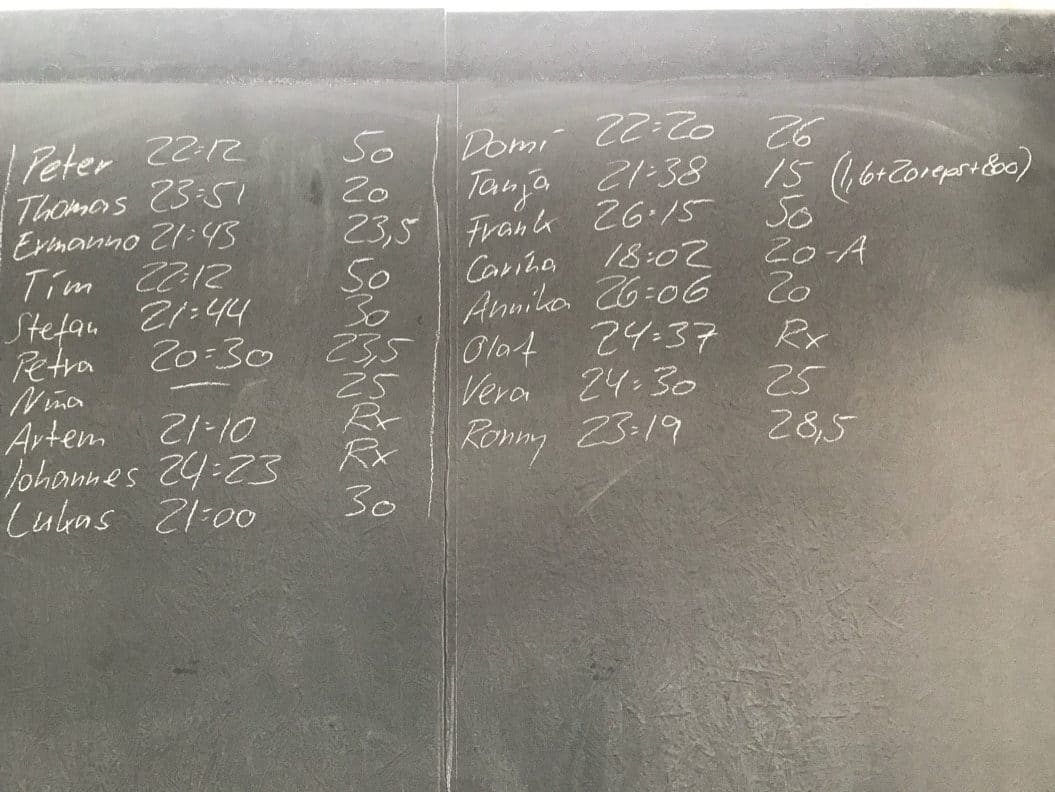 Peter 22:12 50
Thomas 23:51 20
Ermanno 21:43 23,5
Tim 22:12 50
Stefan 21:44 30
Petra 20:30 23,5
Nina — 25
Artem 21:10 Rx
Johannes 24:23 Rx
Lukas 21:00 30
Domi 22:20 26
Tanja 21:38 15 (1,6+20reps+800)
Frank 26:15 50
Carina 18:02 20-A
Annika 26:06 20
Olaf 24:37 Rx
Vera 24:30 25
Ronny 23:19 28,5